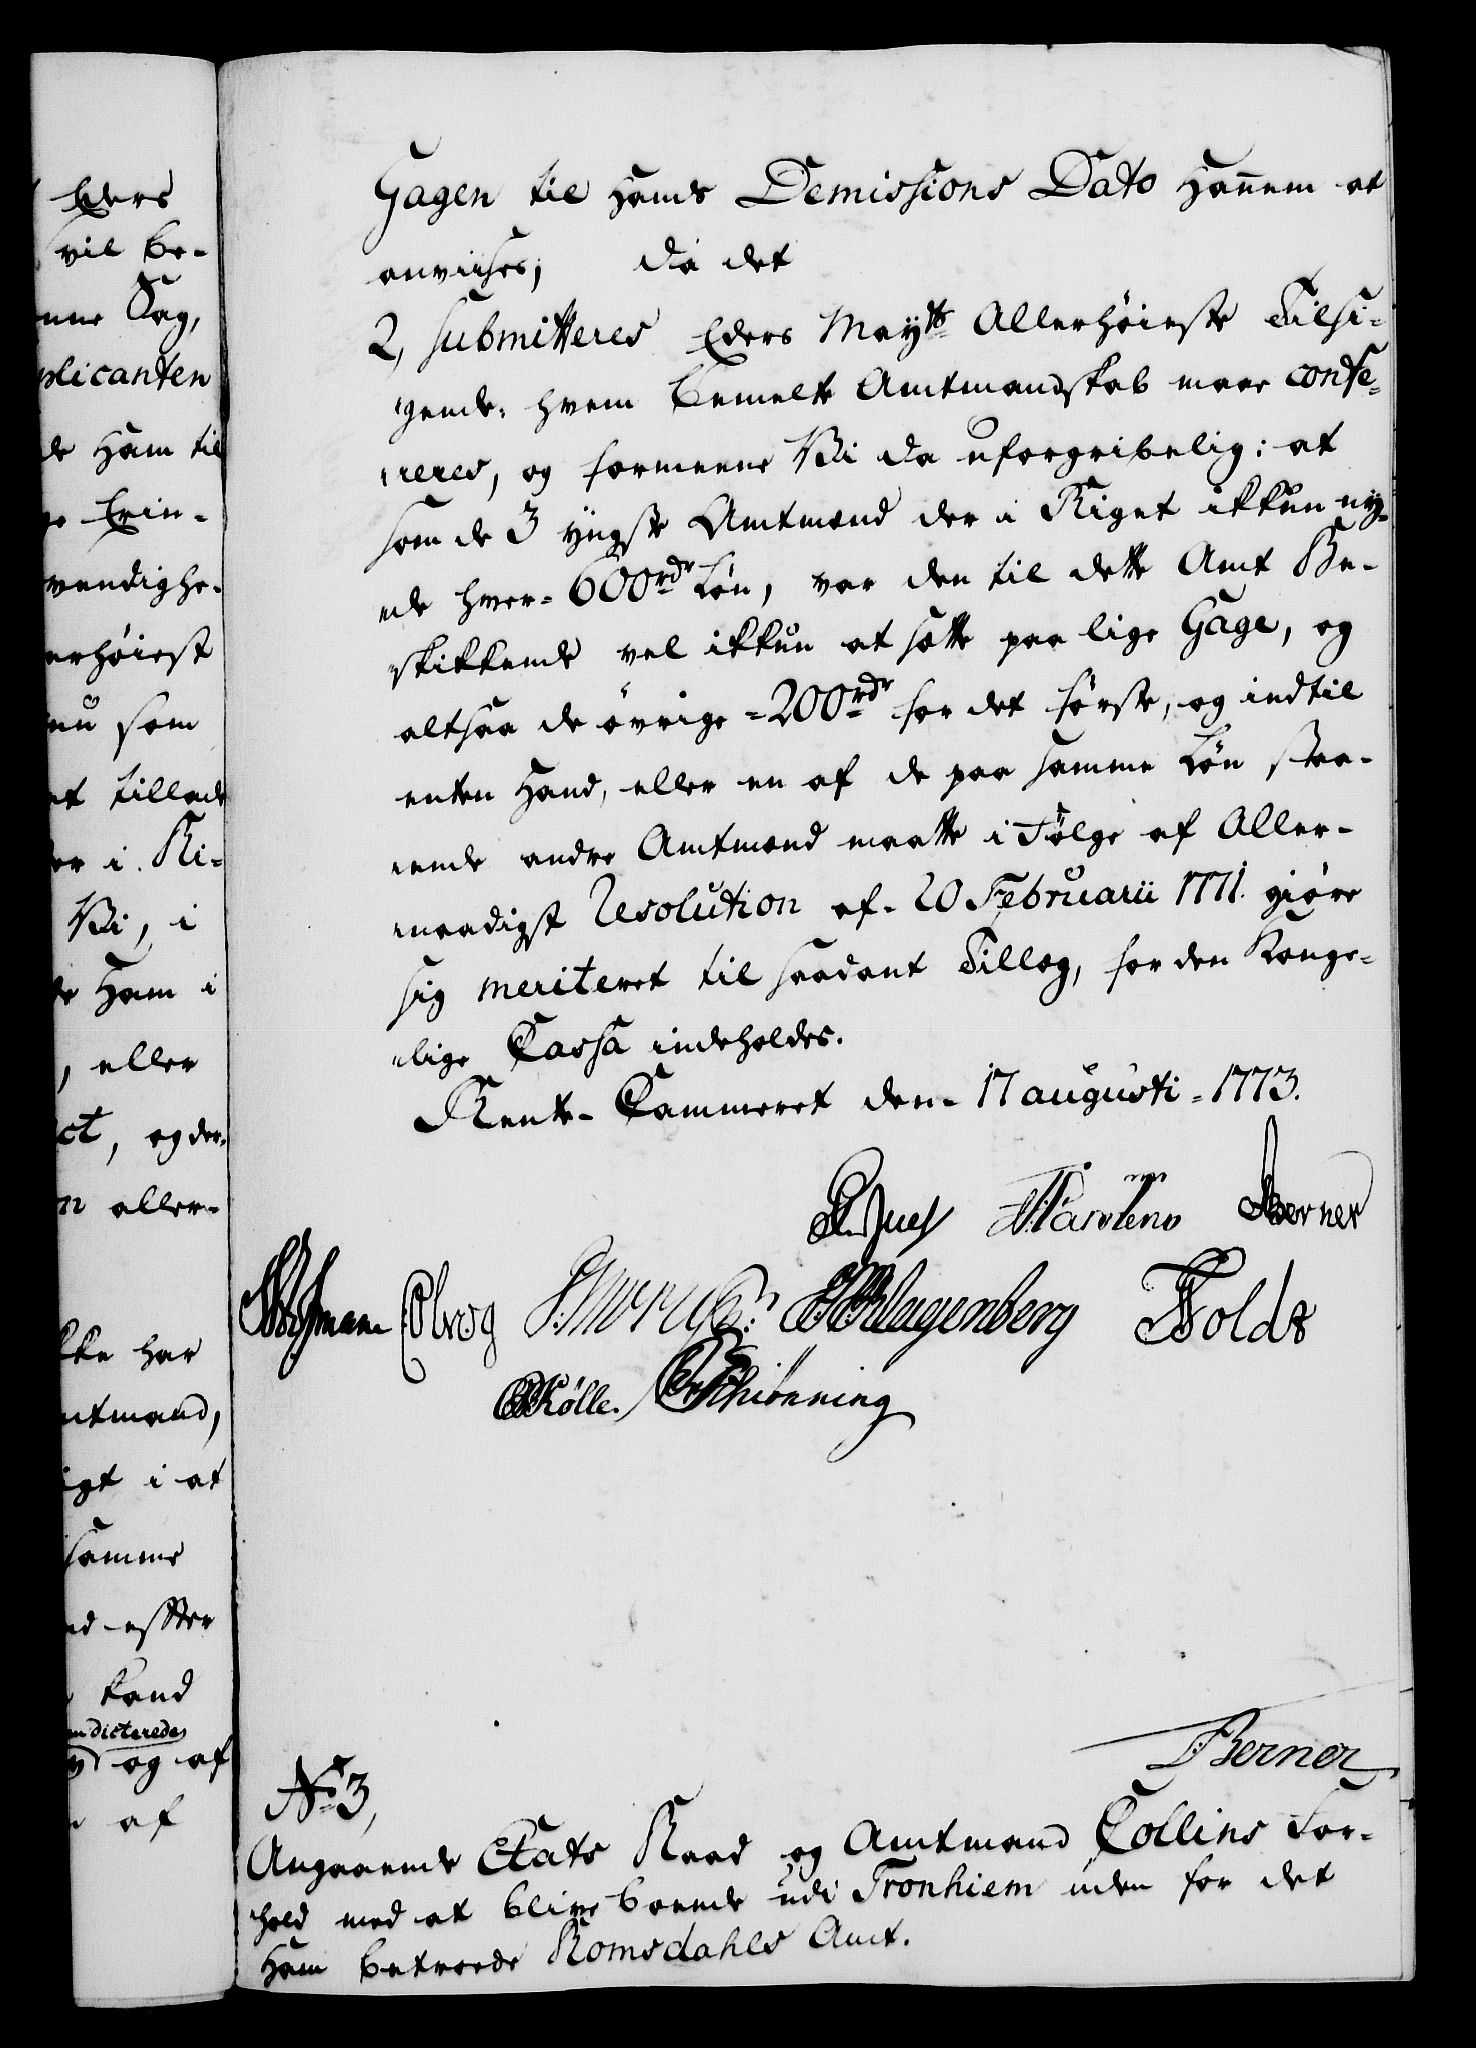 Eders
vil be-
nne Sag,
plicanten
de Ham til
ge Erin-
vendighe-
erhøiest
nu som
et tillade
der i Ri-
Vi, i
de Ham i
, eller
ct, og der-
n aller-
kke har
mtmand,
igt i at
samme
nd efter
kand
dicterede
og af
af
Gagen til Hands Demissions Dato Hannem at
anvises; da det
2, submitteres Eders Maytts Allerhøieste Tilsi-
gende: hvem bemelte Amtmandskab maae confe-
reres, og formeene Vi da uforgribelig: at
som de 3 yngste Amtmænd der i Riget ikkun ny-
de hver = 600 rdr Løn, var den til dette Amt Be-
skikkende vel ikkun at sætte paa lige Gage, og
altsaa de øvrige = 200 rdr for det første, og indtil
enten Hand, eller en af de paa samme Løn staa-
ende andre Amtmænd maatte i Følge af Aller-
naadigst Resolution af 20 Februarii 1771. giøre
sig meriteret til saadant Tillæg, for den Konge-
lige Cassa indeholdes.
Rente-Cammeret den 17 augusti = 1773.
Juel Berner
Klagenberg Holdt
Kølle. Schiønning
Berner
No 3,
Angaaende Etats Raad og Amtmand Collins For-
hold med at blive boende udi Tronhiem uden for det
Ham betroede Romsdahls Amt.